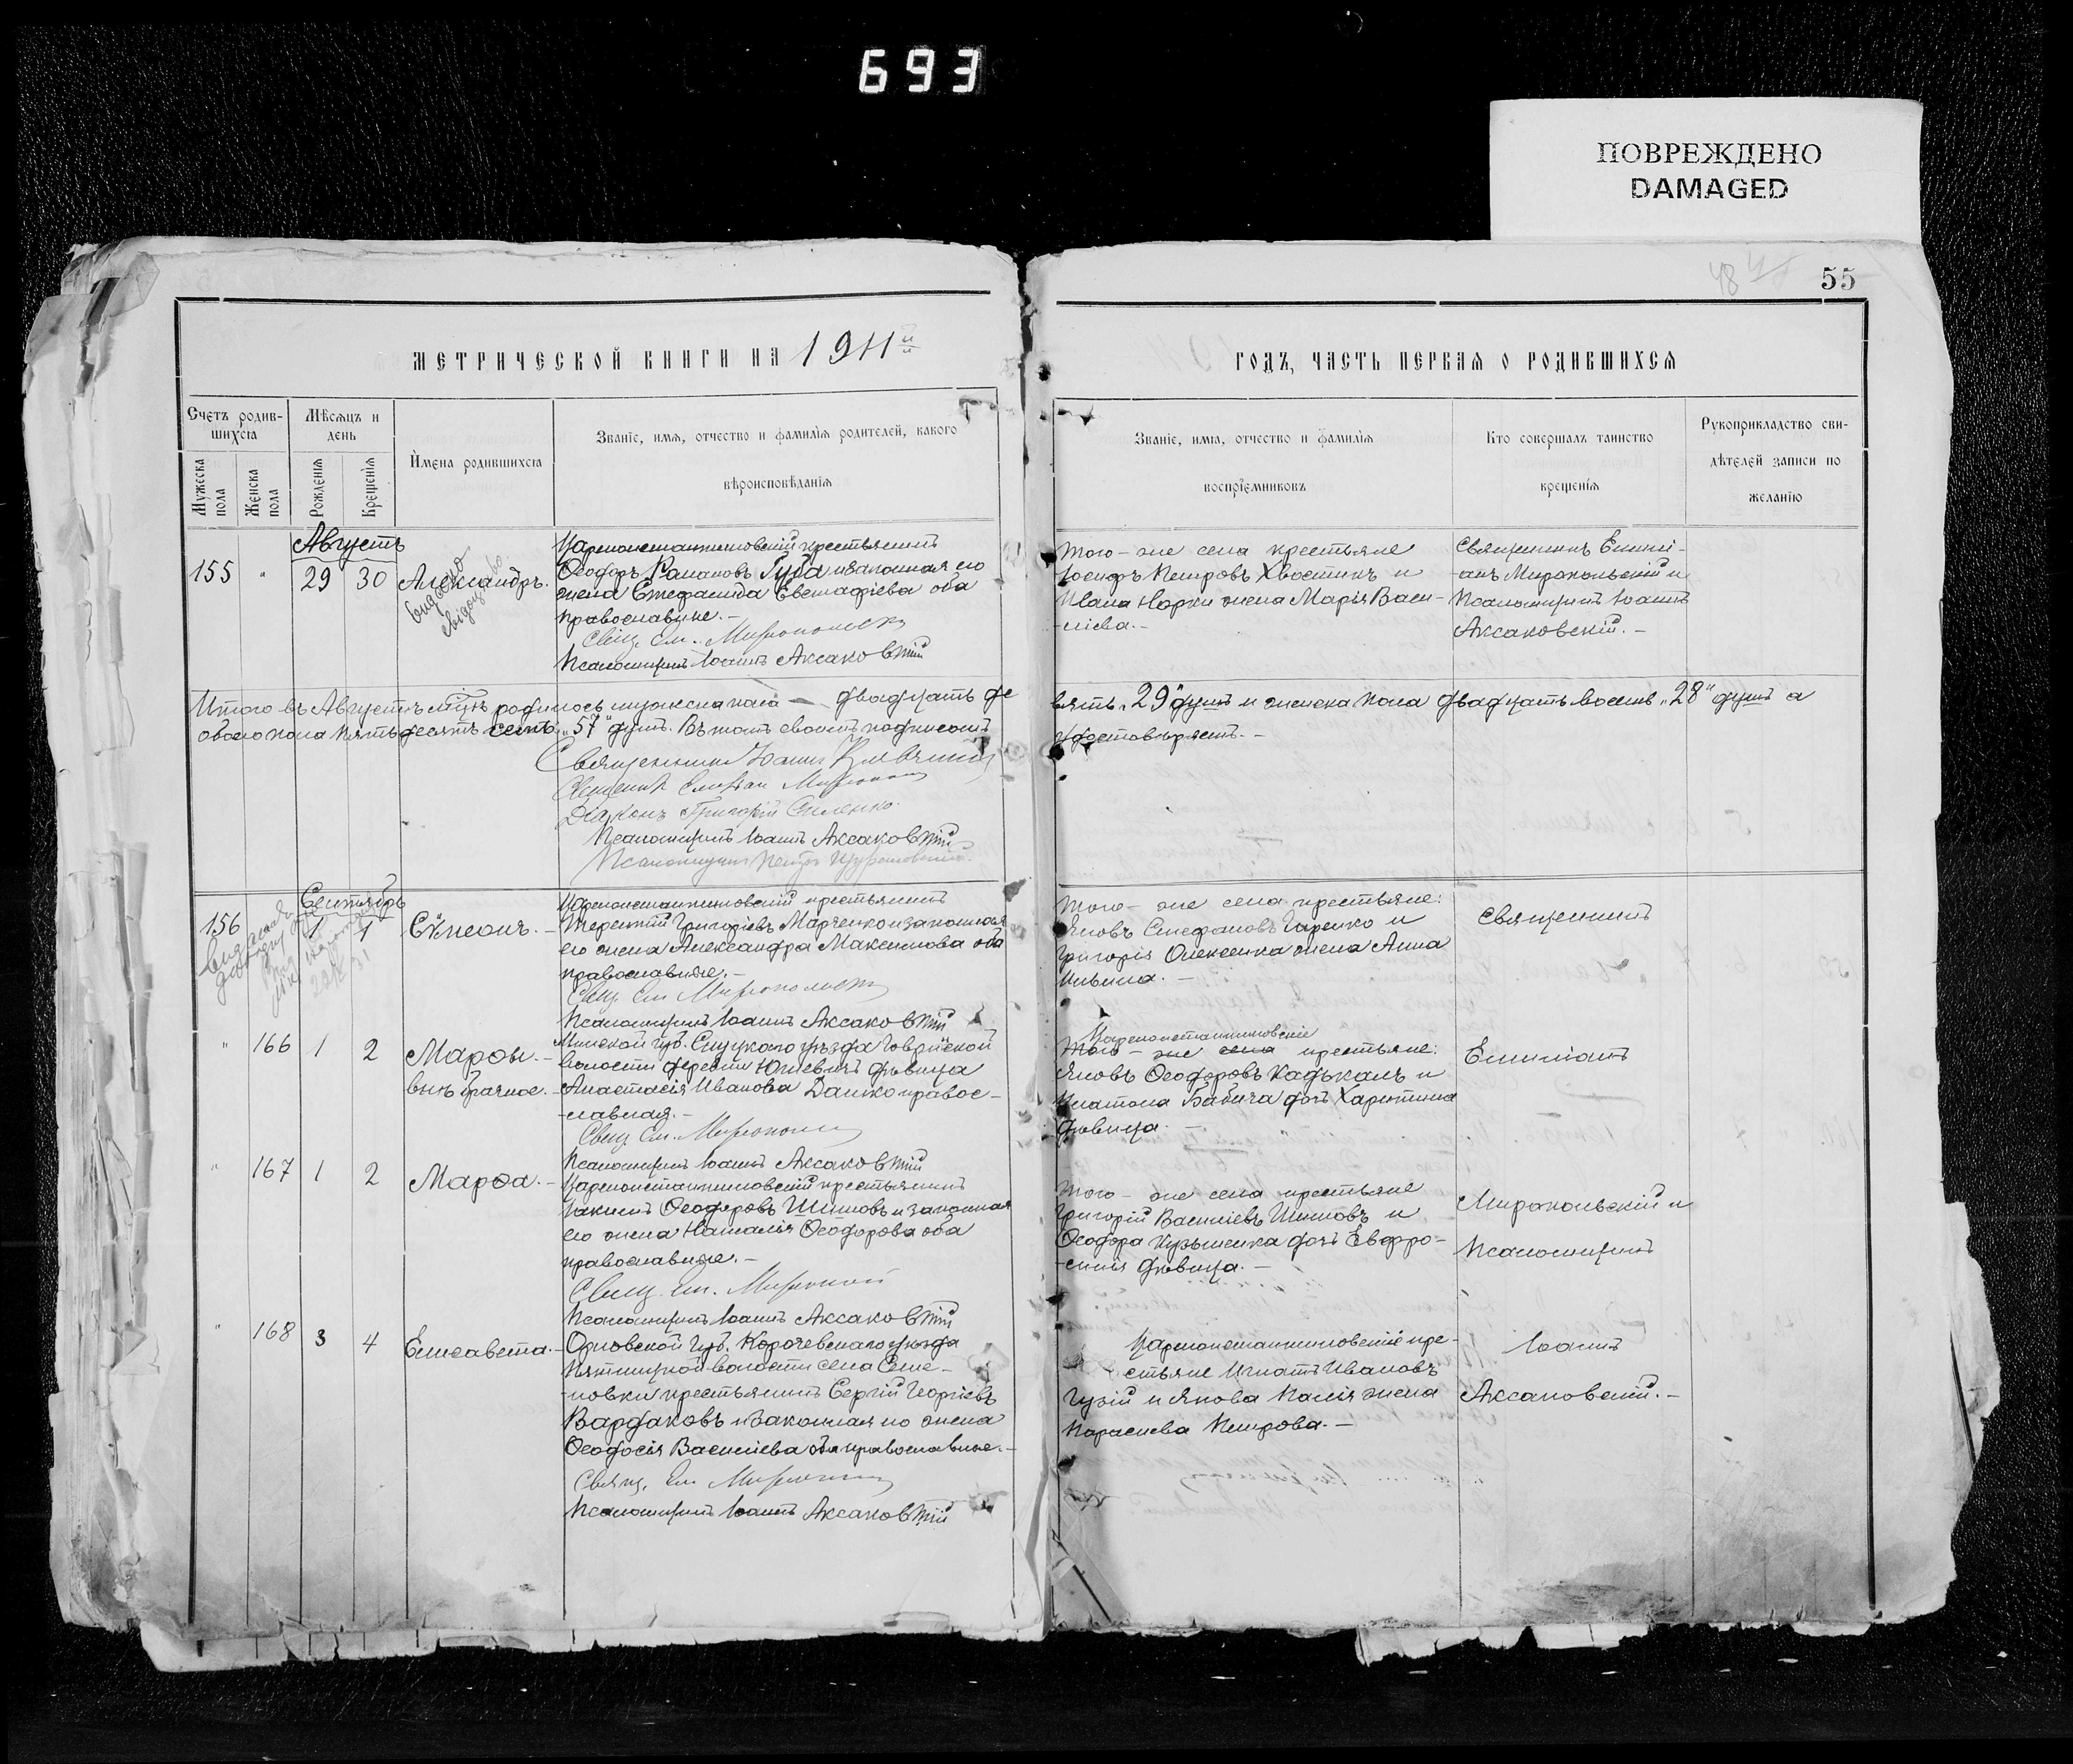 693
ПОВРЕЖДЕНО
DAMAGED
55
МЕТРИЧЕСКОЙ КНИГИ НА 1911й
Счетъ родив-
шихсіа
Мужеска
пола
Женска
пола
Мѣсяцъ и
день
Рожденія
Крещенія
Имена родившихсіа
Званіе, имя, отчество и фамилія родителей, какого
вѣроисповѣданія
ГОДЪ, ЧАСТЬ ПЕРВАЯ О РОДИВШИХСЯ
Званіе, иміа, отчество и фамилія
воспріемниковъ
Кто совершалъ таинство
крещенія
Рукоприкладство сви-
дѣтелей записи по
желанію
Августъ
155 " 29 30 Александръ.
Царепонстантиновскій крестьянинъ
Ѳеодоръ Романовъ Губа и законная его
жена Стефанида Евстафіева оба
православные.-
Псаломщикъ Іоаннъ Аксаковскій
Того-же села крестьяне
Іосифъ Петровъ Хвостикъ и
Ивана Норки жена Марія Васи-
-ліева.-
Священникъ Емили-
-анъ Миропольскій и
Псаломщикъ Іоаннъ
Аксаковскій.-
Итого въ Августѣ м-цѣ родилось мужеска пола - двадцать де
вять "29" душъ и женска пола двадцать восемь "28" душъ а
обоего пола пятьдесятъ семь "57" душъ. Въ томъ своимъ подписомъ
удостовѣряемъ.-
Священникъ Іоаннъ
Діаконъ Григорій
Псаломщикъ Іоаннъ Аксаковскій
Псаломщикъ Петръ
Сентябрь
156 1 1 Сѵмеонъ.-
Царепонстантиновскій крестьянинъ
Терентій Григоріевъ Марченко и законная
его жена Александра Максимова оба
православные.-
Псаломщикъ Іоаннъ Аксаковскій
Того-же села крестьяне:
Яковъ Стефановъ Гаренко и
Григорія Олексенка жена Анна
Ильина.-
Священникъ
" 166 1 2 Марѳы.-
внѣбрачное.-
Минской губ. Слуцкаго уѣзда
волости деревни Юшевичъ дѣвица
Анастасія Иванова Данко правос-
-лавная.-
Псаломщикъ Іоаннъ Аксаковскій
Царепонстантиновскіе
Того-же села крестьяне:
Яковъ Ѳеодоровъ Кадькалъ и
Игнатія Бабича дочь Харитина
дѣвица.-
Емиліанъ
" 167 1 2 Марѳа.-
Царепонстантиновскій крестьянинъ
Іакимъ Ѳеодоровъ Шишовъ и законная
его жена Наталія Ѳеодорова оба
православные.-
Псаломщикъ Іоаннъ Аксаковскій
Того-же села крестьяне
Григорій Василіевъ Шишовъ и
Ѳеодора Кузьменка дочь Евфро-
-синія дѣвица.-
Миропольскій и
Псаломщикъ
" 168 3 4 Елисавета.-
Орловской губ. Карачевскаго уѣзда
Пятницкой волости села Семе-
-новки крестьянинъ Сергій Георгіевъ
Вардаковъ и законная его жена
Ѳеодосія Василіева оба православные.-
Псаломщикъ Іоаннъ Аксаковскій
Царепонстантиновскіе кре-
стьяне Игнатъ Ивановъ
Гузій и Якова Палія жена
Параскева Петрова.-
Іоаннъ
Аксаковскій.-